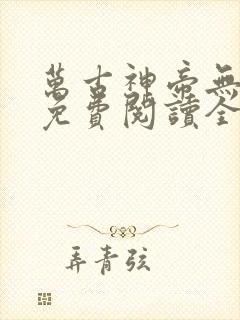 萬古神帝無
免費閱讀全
弄青弦